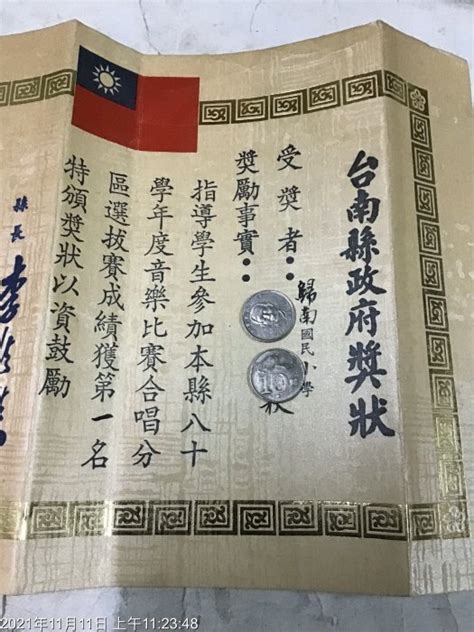 台南縣政府獎狀
受獎者：歸南國民小學
獎勵事實：
指導學生參加本縣八十
學年度音樂比賽合唱分
區選拔賽成績獲第一名
特頒獎狀以資鼓勵
縣長 李
10
2021年11月11日 上午11:23:48